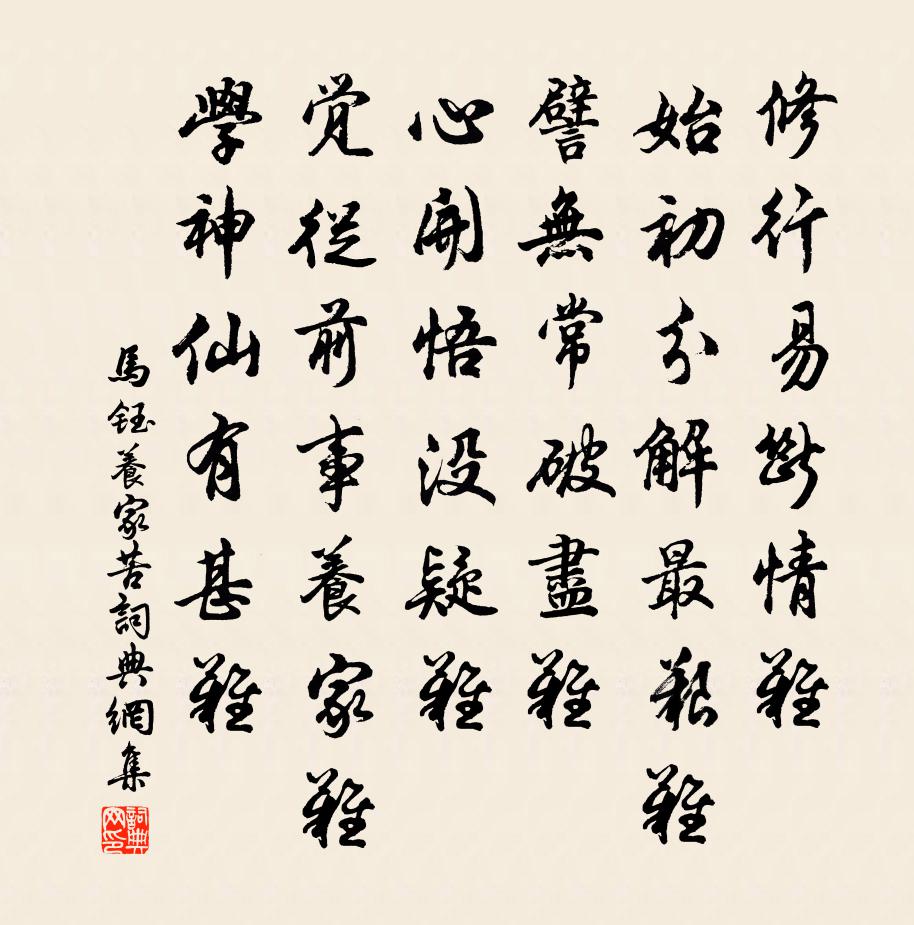 修行易斷情難
始初分解最艱難
譬無常破盡難
心開悟沒疑難
覺從前事養家難
學神仙有甚難
馬鈺養家苦詞典網集
詞典網印